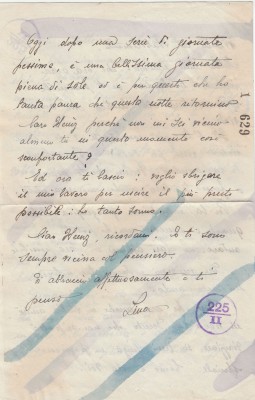 Oggi dopo una serie di giornate
pessime, è una bellissima giornata
piena di sole ed è per questo che ho
tanta paura che questa notte
Caro Heinz, perchè non mi sei vicino
almeno in questo momento così
sconfortante?
Ed ora ti lascio: voglio sbrigare
il mio lavoro per uscire il più presto
possibile: ho tanto sonno.
Ciao Heinz, ricordami. Io ti sono
sempre vicina col pensiero.
Ti abbraccio affettuosamente e ti
penso
Lina
1
629
225
II